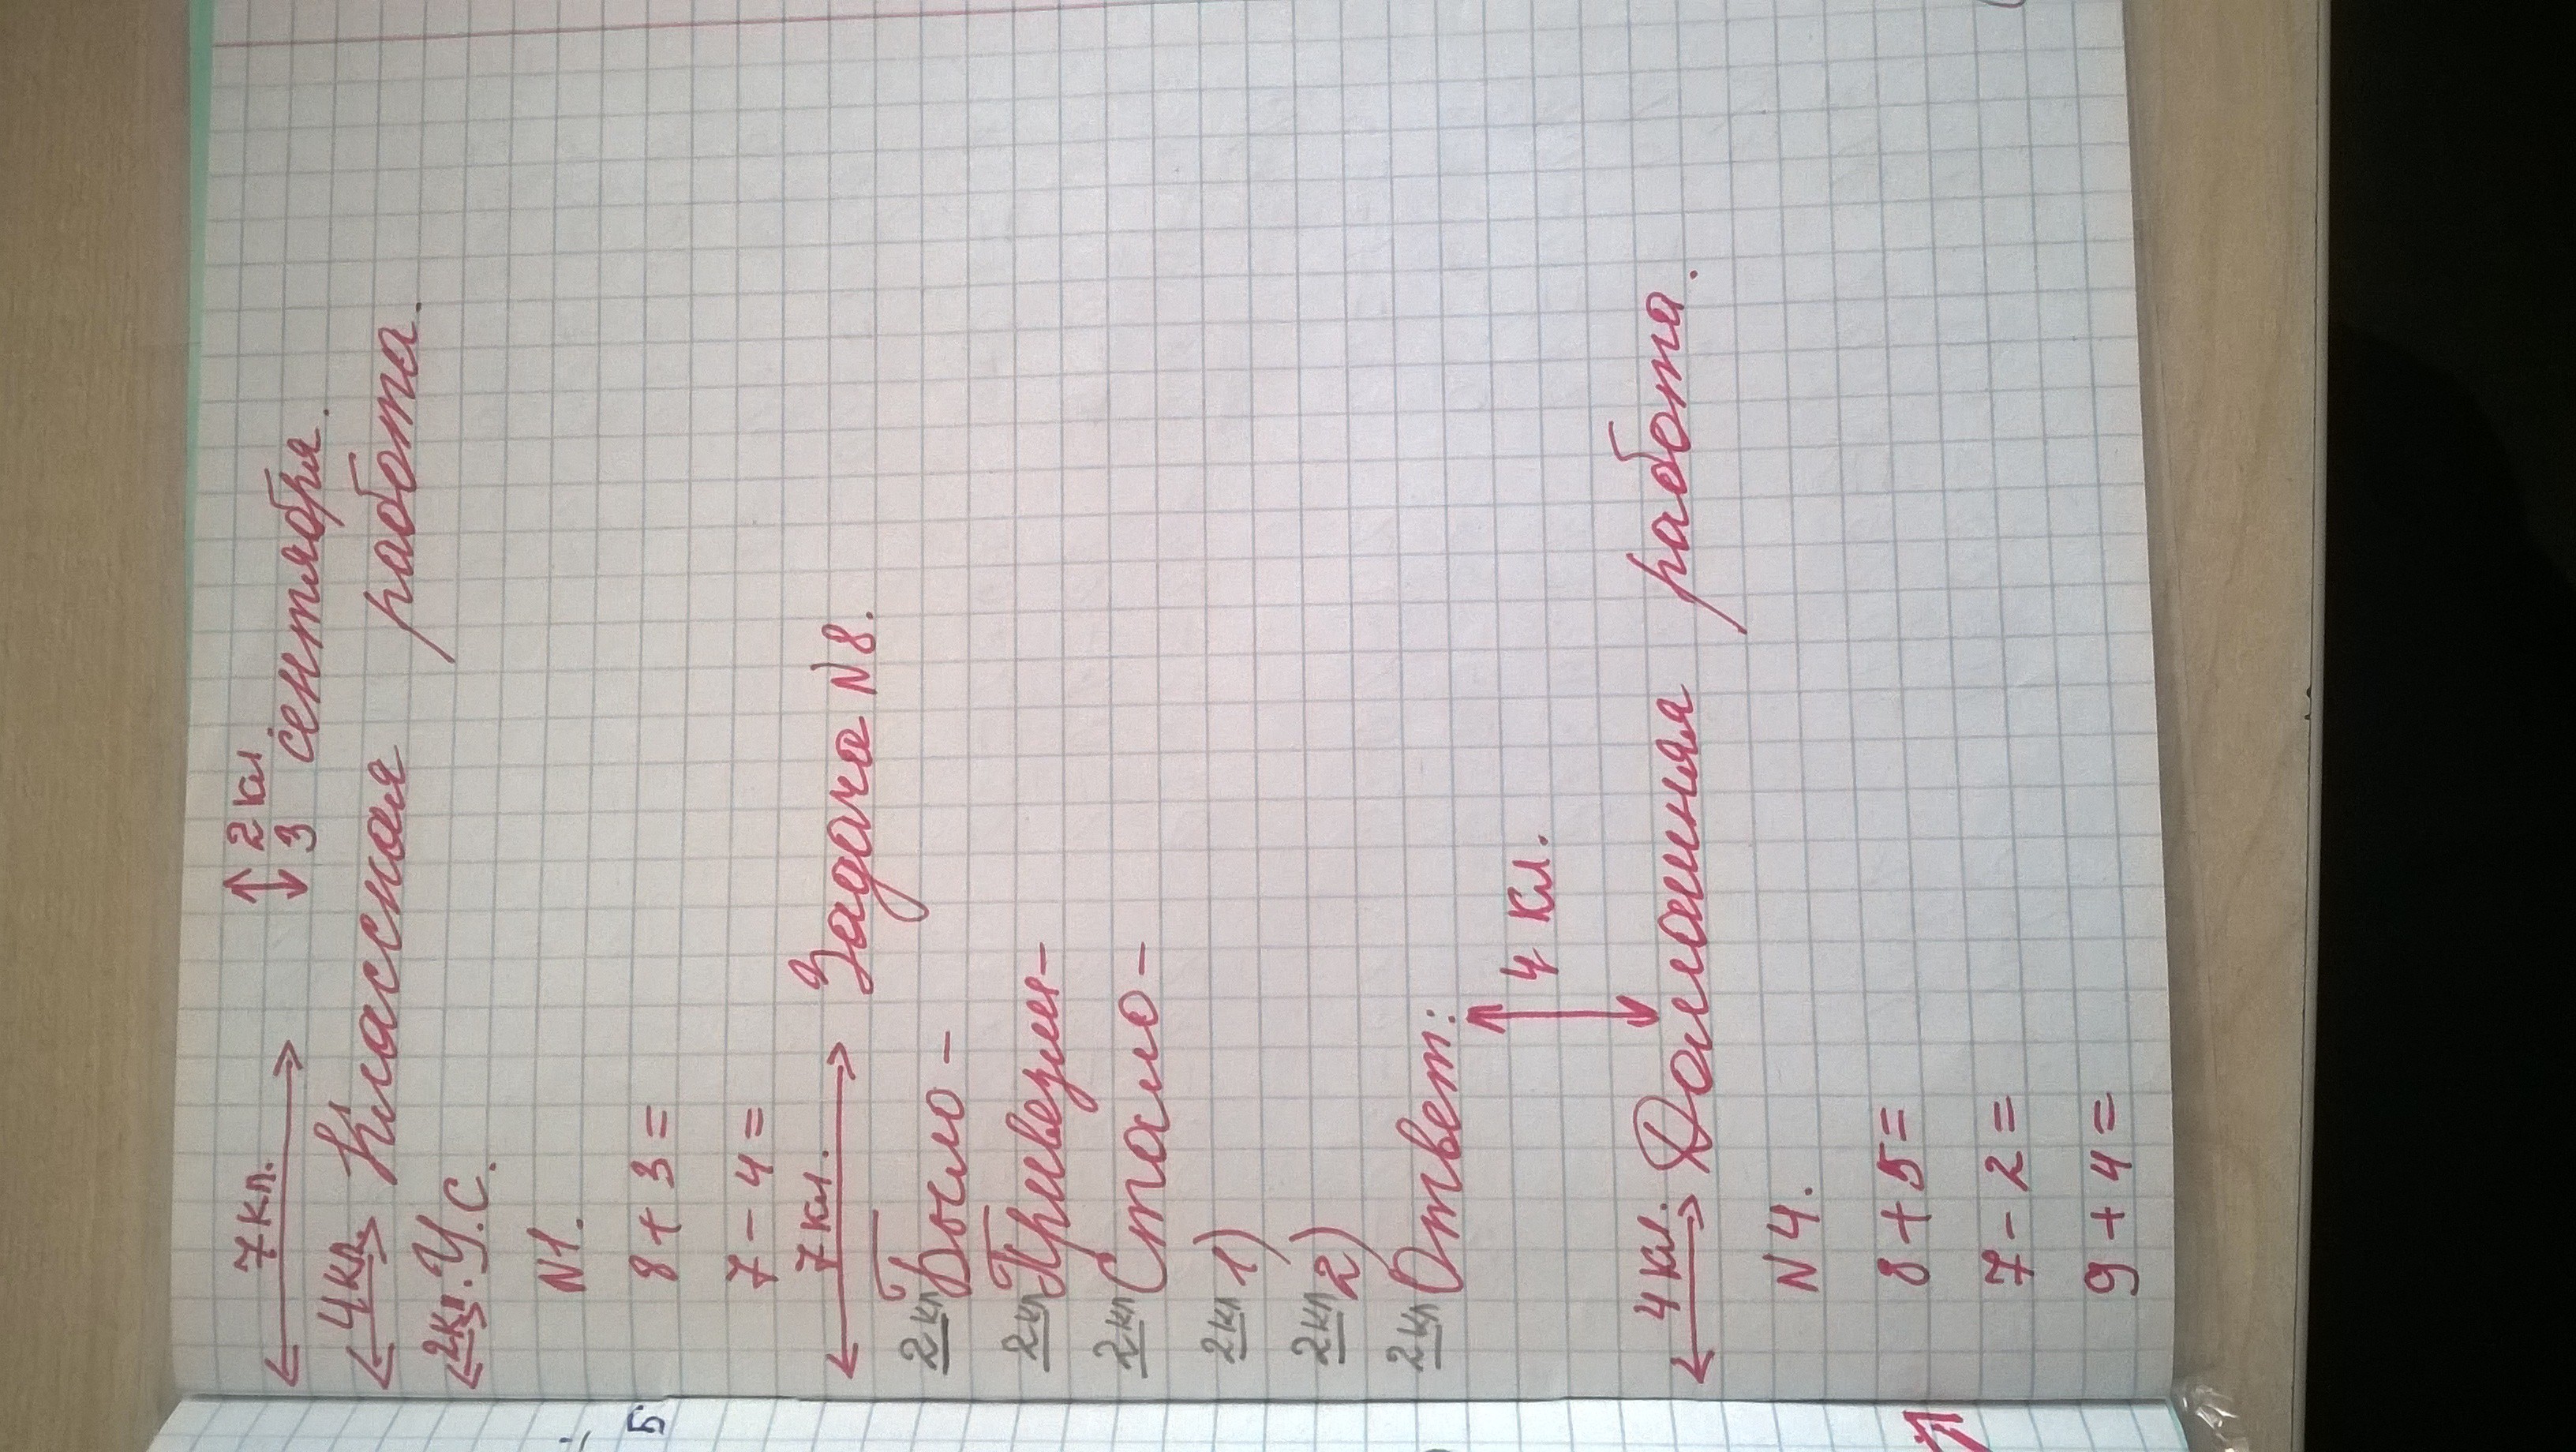 2 кл
7 кл. 3 сентября.
4 кл. Классная работа.
2 кл. У.С.
N1.
8 + 3 =
7 - 4 =
7 кл. Задача N8.
2 кл Было -
2 кл Привезли -
2 кл Стало -
2 кл 1)
2 кл 2)
2 кл Ответ:
4 кл.
4 кл. Домашняя работа.
N 4.
8 + 5 =
7 - 2 =
9 + 4 =
5